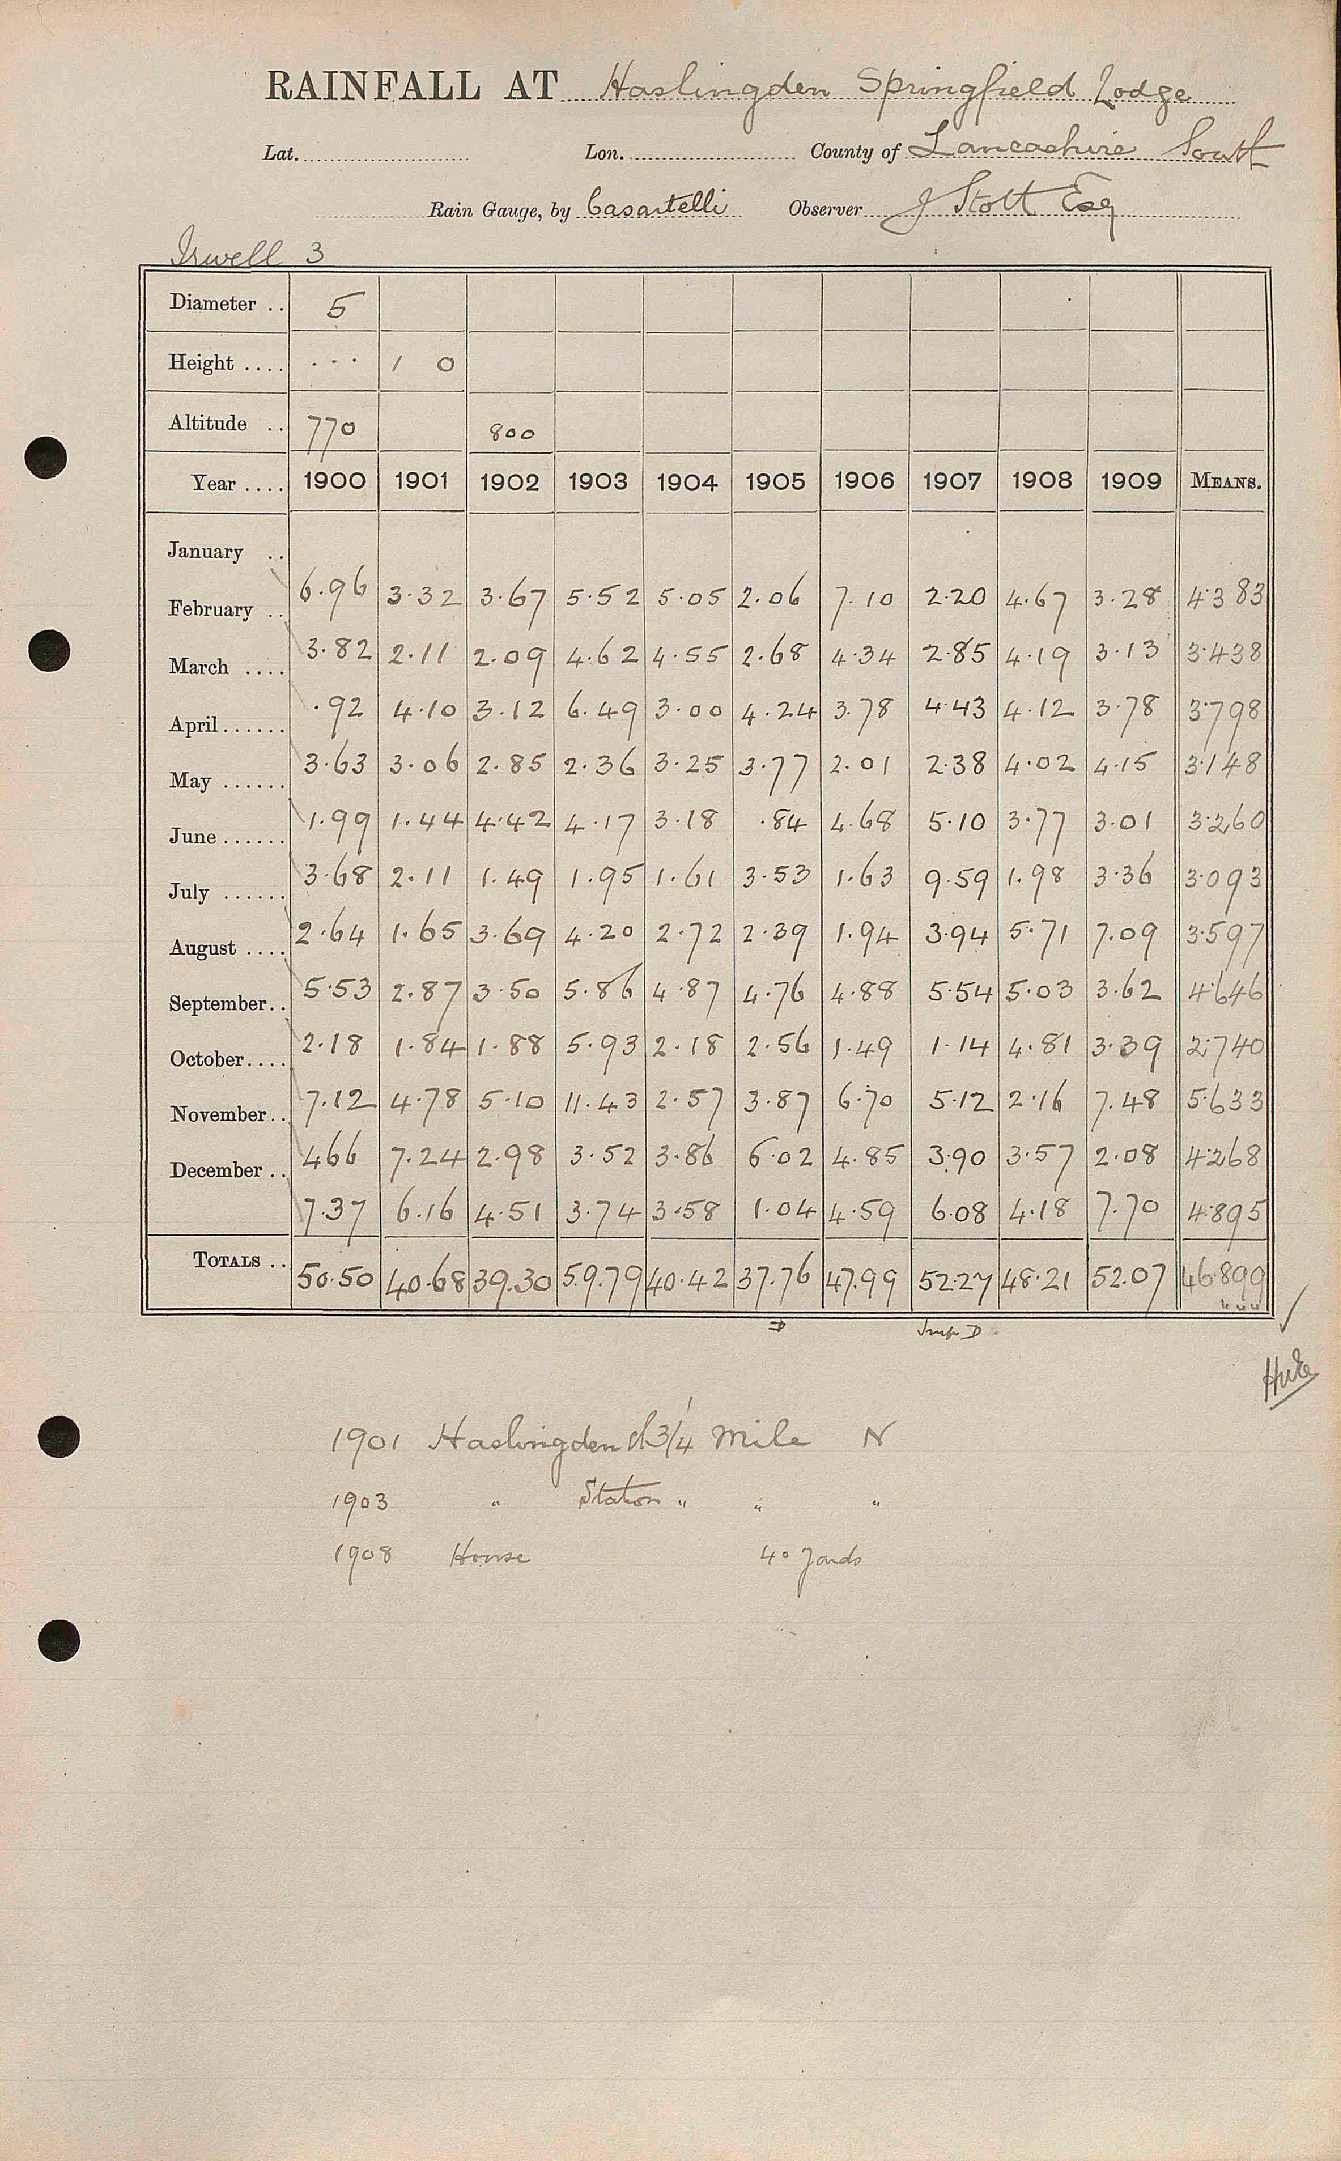 RAINFALL AT Haslingden Springfield Lodge
Lat. Lon. County of Lancashire South
Rain Gauge, by Casartelli Observer J Stott Esq
Irwell 3
Diameter .. 5
Height .... ... 1 0
Altitude .. 770 800
Year .... 1900 1901 1902 1903 1904 1905 1906 1907 1908 1909 MEANS.
January ..
6.96 3.32 3.67 5.52 5.05 2.06 7.10 2.20 4.67 3.28 4.383
February ..
3.82 2.11 2.09 4.62 4.55 2.68 4.34 2.85 4.19 3.13 3.438
March ....
.92 4.10 3.12 6.49 3.00 4.24 3.78 4.43 4.12 3.78 3.798
April ......
3.63 3.06 2.85 2.36 3.25 3.77 2.01 2.38 4.02 4.15 3.148
May ......
1.99 1.44 4.42 4.17 3.18 .84 4.68 5.10 3.77 3.01 3.260
June ......
3.68 2.11 1.49 1.95 1.61 3.53 1.63 9.59 1.98 3.36 3.093
July ......
2.64 1.65 3.69 4.20 2.72 2.39 1.94 3.94 5.71 7.09 3.597
August ....
5.53 2.87 3.50 5.86 4.87 4.76 4.88 5.54 5.03 3.62 4.646
September..
2.18 1.84 1.88 5.93 2.18 2.56 1.49 1.14 4.81 3.39 2.740
October....
7.12 4.78 5.10 11.43 2.57 3.87 6.70 5.12 2.16 7.48 5.633
November..
4.66 7.24 2.98 3.52 3.86 6.02 4.85 3.90 3.57 2.08 4.268
December ..
7.37 6.16 4.51 3.74 3.58 1.04 4.59 6.08 4.18 7.70 4.895
TOTALS .. 50.50 40.68 39.30 59.79 40.42 37.76 47.99 52.27 48.21 52.07 46.899
D
1901 Haslingden 3/4 Mile N
1903 " Station " " "
1908 House 40 yards